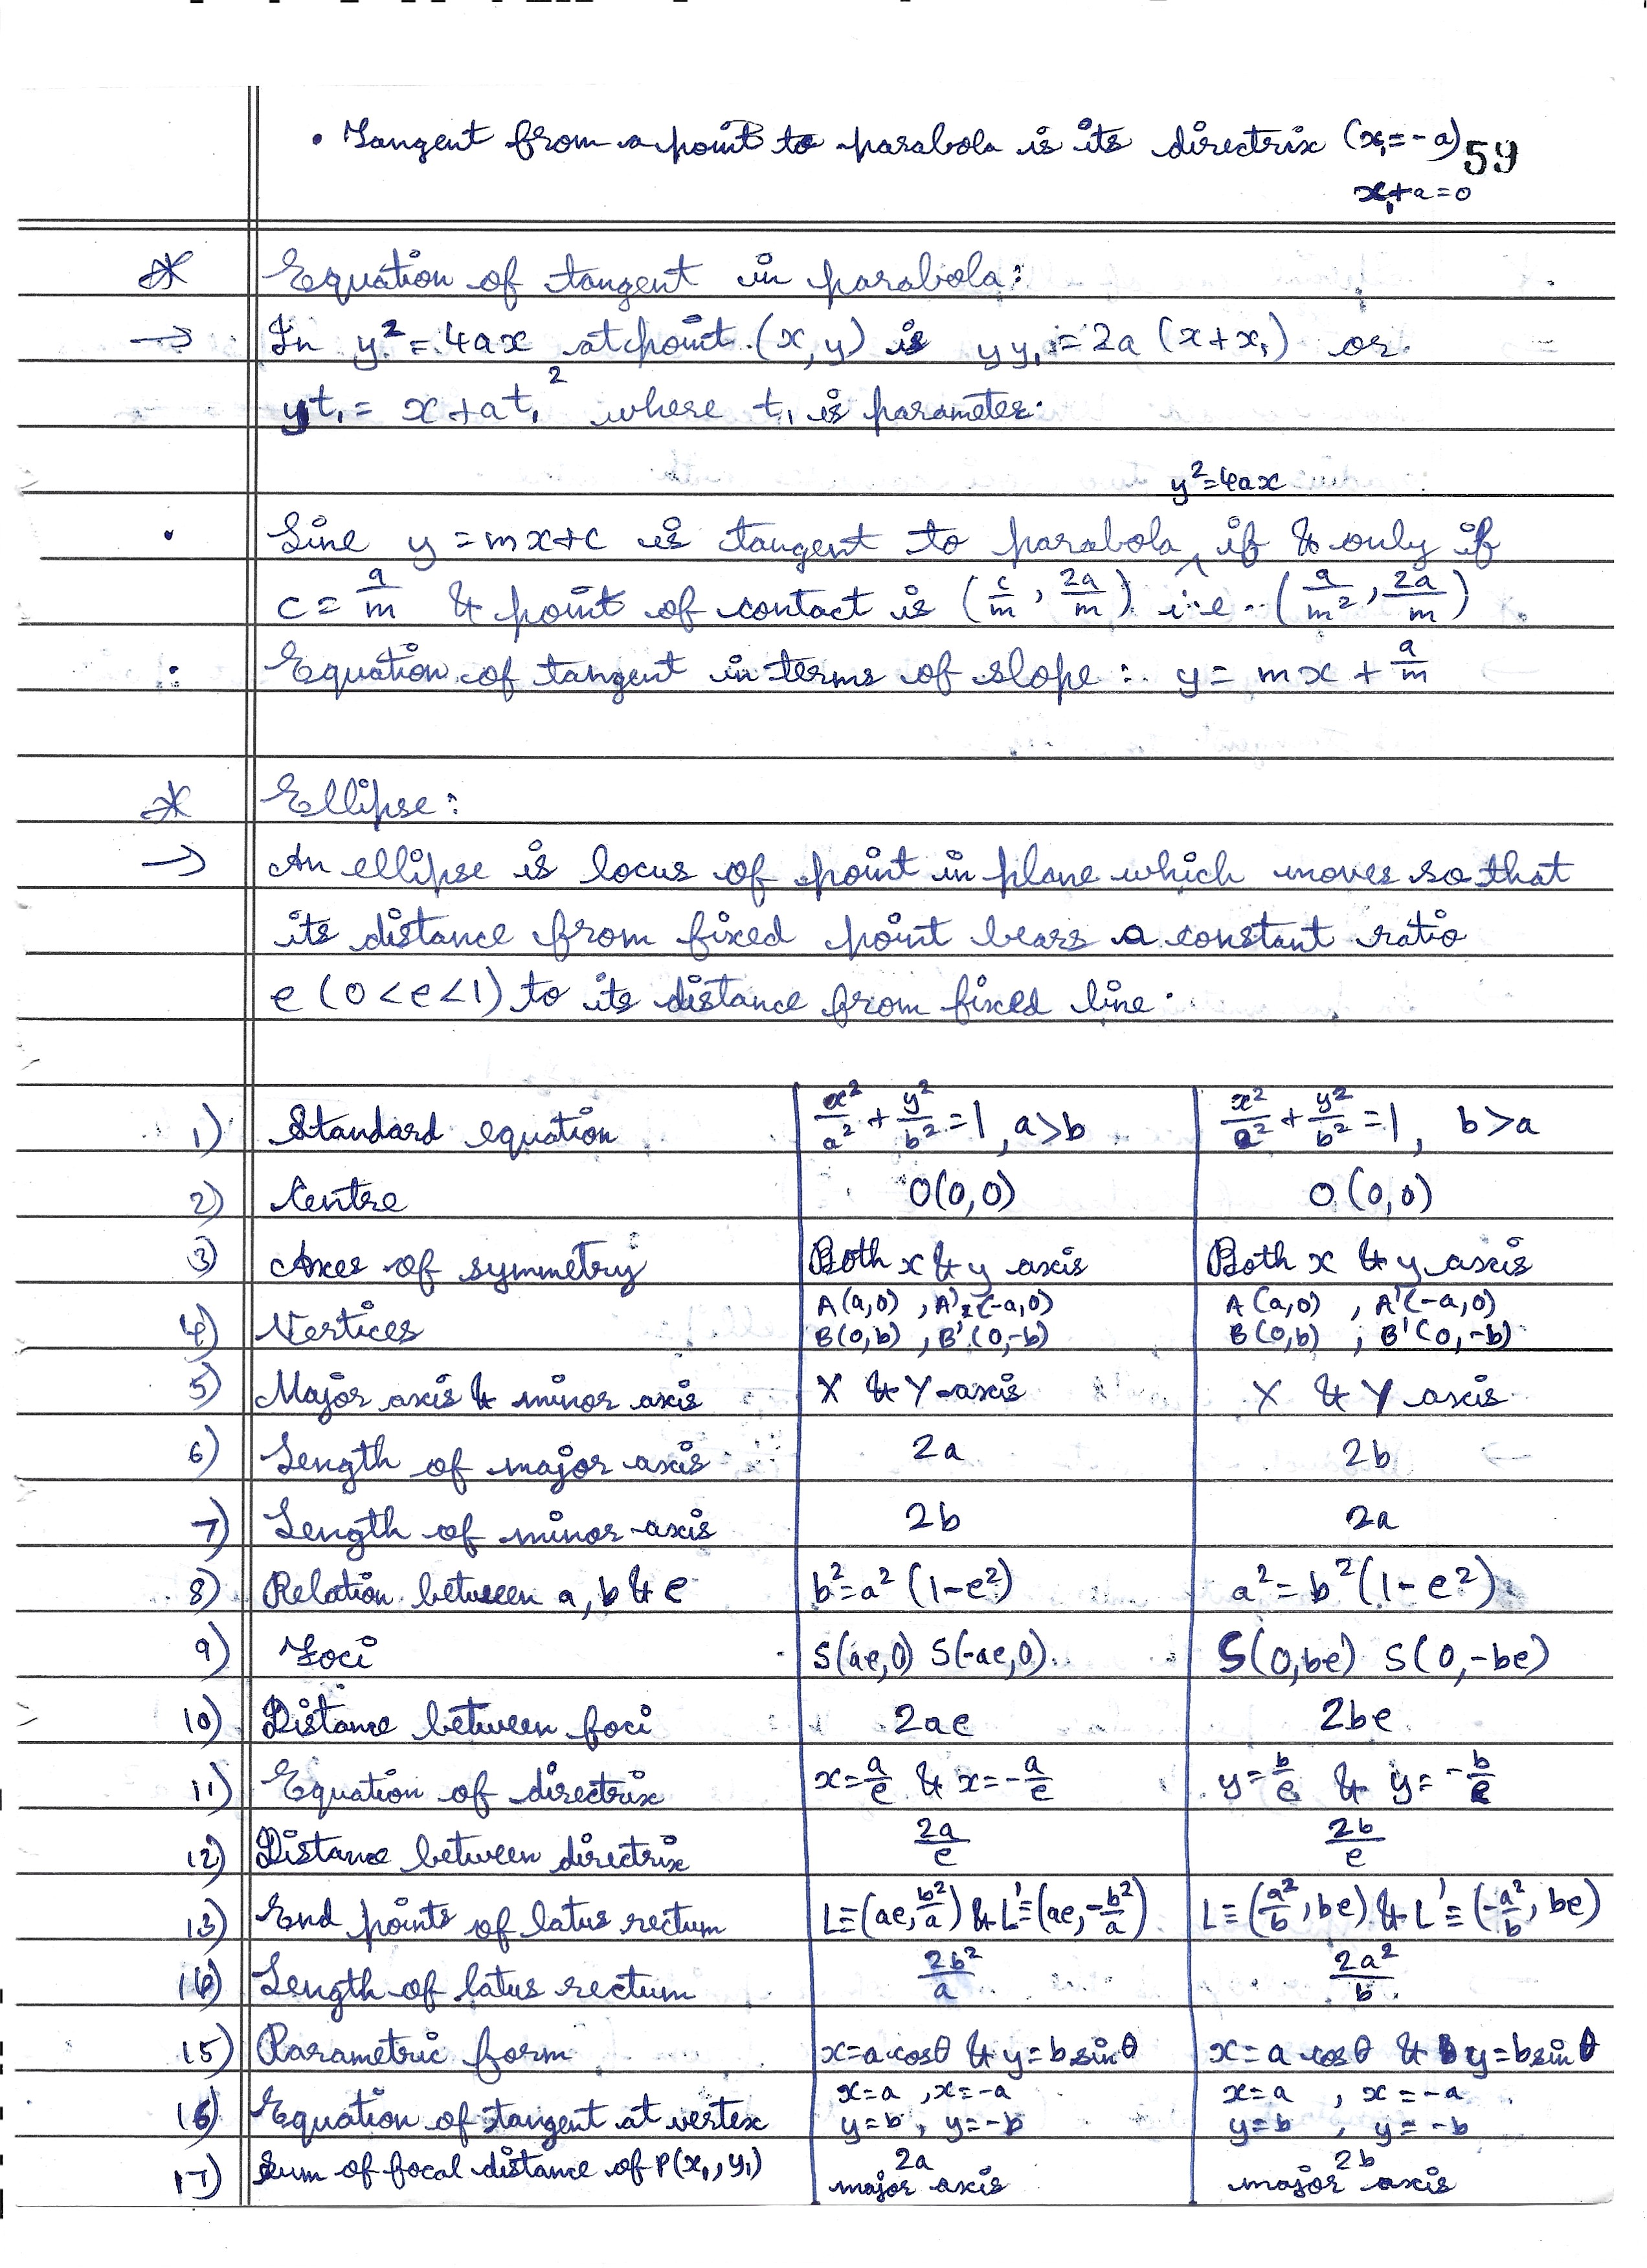 • Tangent from a point to parabola is its directrix (x₁=-a) 59
x₁+a=0
* Equation of tangent in parabola:
→ In y²=4ax at point (x,y) is yy₁=2a(x+x₁) or
yt₁ = x+at₁² where t₁ is parameter.
y²=4ax
• Line y=mx+c is tangent to parabola ^ if & only if
c = a/m & point of contact is (c/m, 2a/m) i.e. (a/m², 2a/m)
: Equation of tangent in terms of slope: y = mx + a/m
* Ellipse:
→ An ellipse is locus of point in plane which moves so that
its distance from fixed point bears a constant ratio
e (0<e<1) to its distance from fixed line.
1) Standard equation x²/a² + y²/b² = 1, a>b x²/a² + y²/b² = 1, b>a
2) Centre O(0,0) O(0,0)
3) Axes of symmetry Both x & y axis Both x & y axis
4) Vertices A(a,0), A'=(-a,0) A(a,0), A'(-a,0)
B(0,b), B'(0,-b) B(0,b), B'(0,-b)
5) Major axis & minor axis X & Y-axis X & Y axis
6) Length of major axis 2a 2b
7) Length of minor axis 2b 2a
8) Relation between a, b & e b²=a²(1-e²) a²=b²(1-e²)
9) Foci S(ae,0) S(-ae,0) S(0,be) S(0,-be)
10) Distance between foci 2ae 2be
11) Equation of directrix x=a/e & x=-a/e y=b/e & y=-b/e
12) Distance between directrix 2a/e 2b/e
13) End points of latus rectum L≡(ae, b²/a) & L'≡(ae, -b²/a) L≡(a²/b, be) & L'≡(-a²/b, be)
14) Length of latus rectum 2b²/a 2a²/b
15) Parametric form x=a cosθ & y=b sinθ x=a cosθ & y=b sinθ
16) Equation of tangent at vertex x=a, x=-a x=a, x=-a
y=b, y=-b y=b, y=-b
17) Sum of focal distance of P(x₁,y₁) 2a 2b
major axis major axis